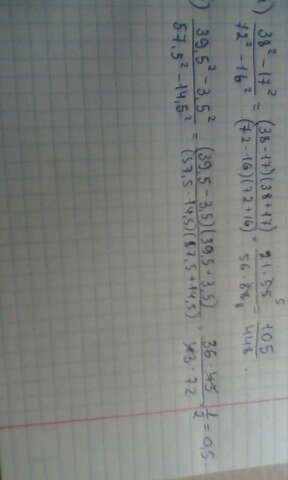 38² - 17² / 72² - 16² = (38-17)(38+17) / (72-16)(72+16) = 21·55 / 56·88 = 105 / 448.
39,5² - 3,5² / 57,5² - 14,5² = (39,5-3,5)(39,5+3,5) / (57,5-14,5)(57,5+14,5) = 36·43 / 43·72 = 1/2 = 0,5